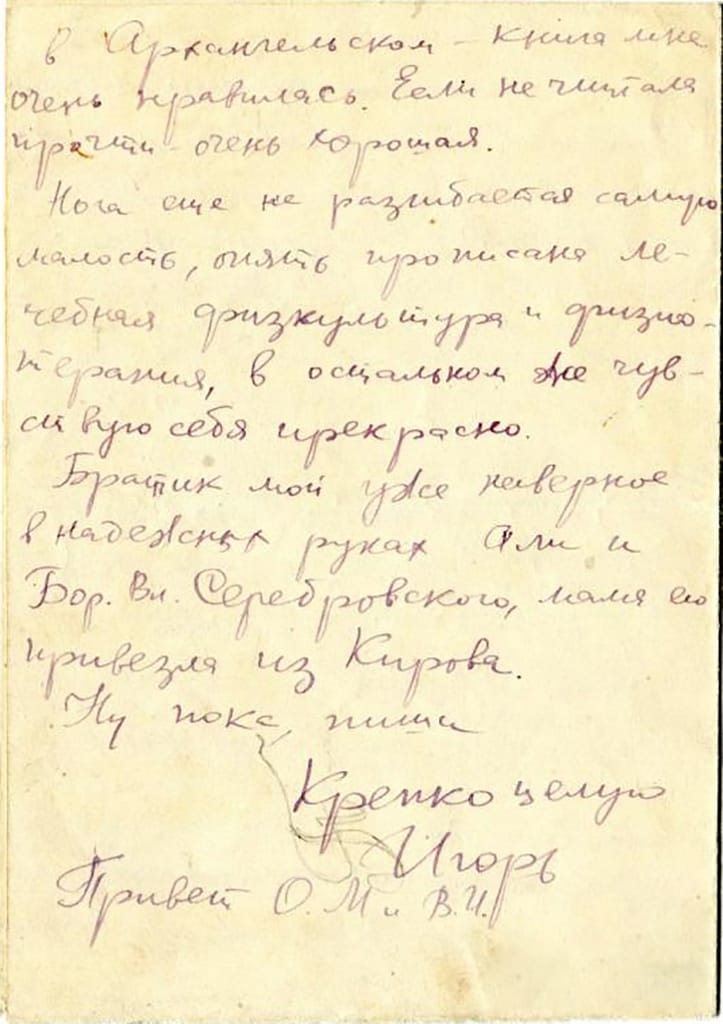 в Архангельском – книга мне
очень нравилась. Если не читала
прочти – очень хорошая.
Нога еще не разгибается самую
малость, опять прописана ле-
чебная физкультура и физио-
терапия, в остальном же чув-
ствую себя прекрасно.
Братик мой уже наверное
в надежных руках Али и
Бор. Вл. Серебровского, мама его
привезла из Кирова.
Ну пока, пиши
Крепко целую
Игорь
Привет О.М и В.И.